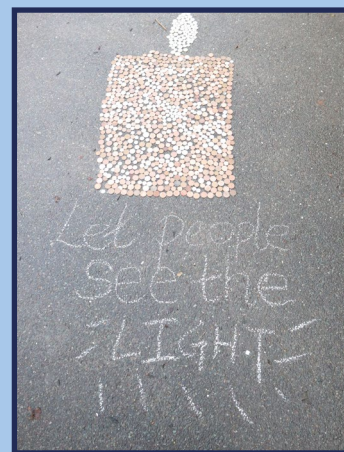 Let people
see the
LIGHT